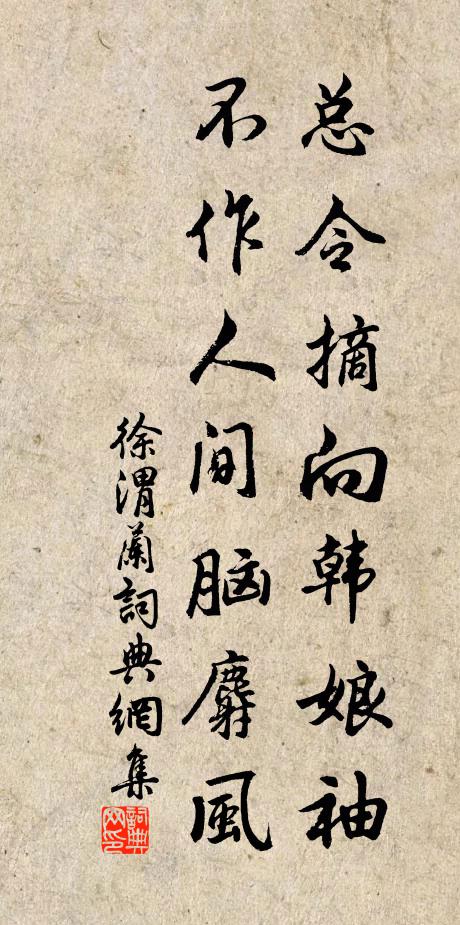 总令摘向韩娘袖
不作人间脑麝風
徐渭蘭詞典網集
詞典网印